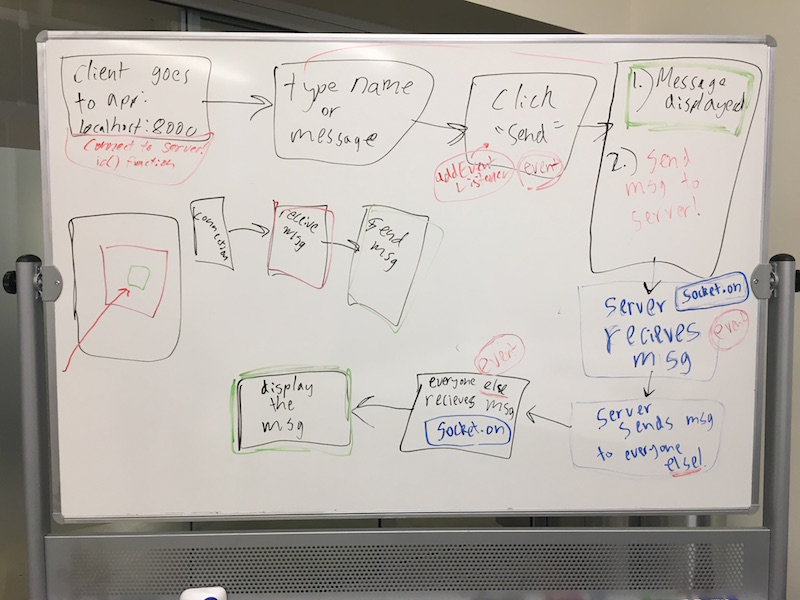 Client goes
to app:
localhost:8000
Connect to server!
io() function
type name
or
message
Click
"Send"
addEvent
Listener
event
1.) Message
displayed
2.) Send
msg to
server!
connection
receive
msg
Send
msg
Server
recieves
msg
Socket.on
event
Server
sends msg
to everyone
else!
event
everyone else
recieves msg
Socket.on
display
the
msg